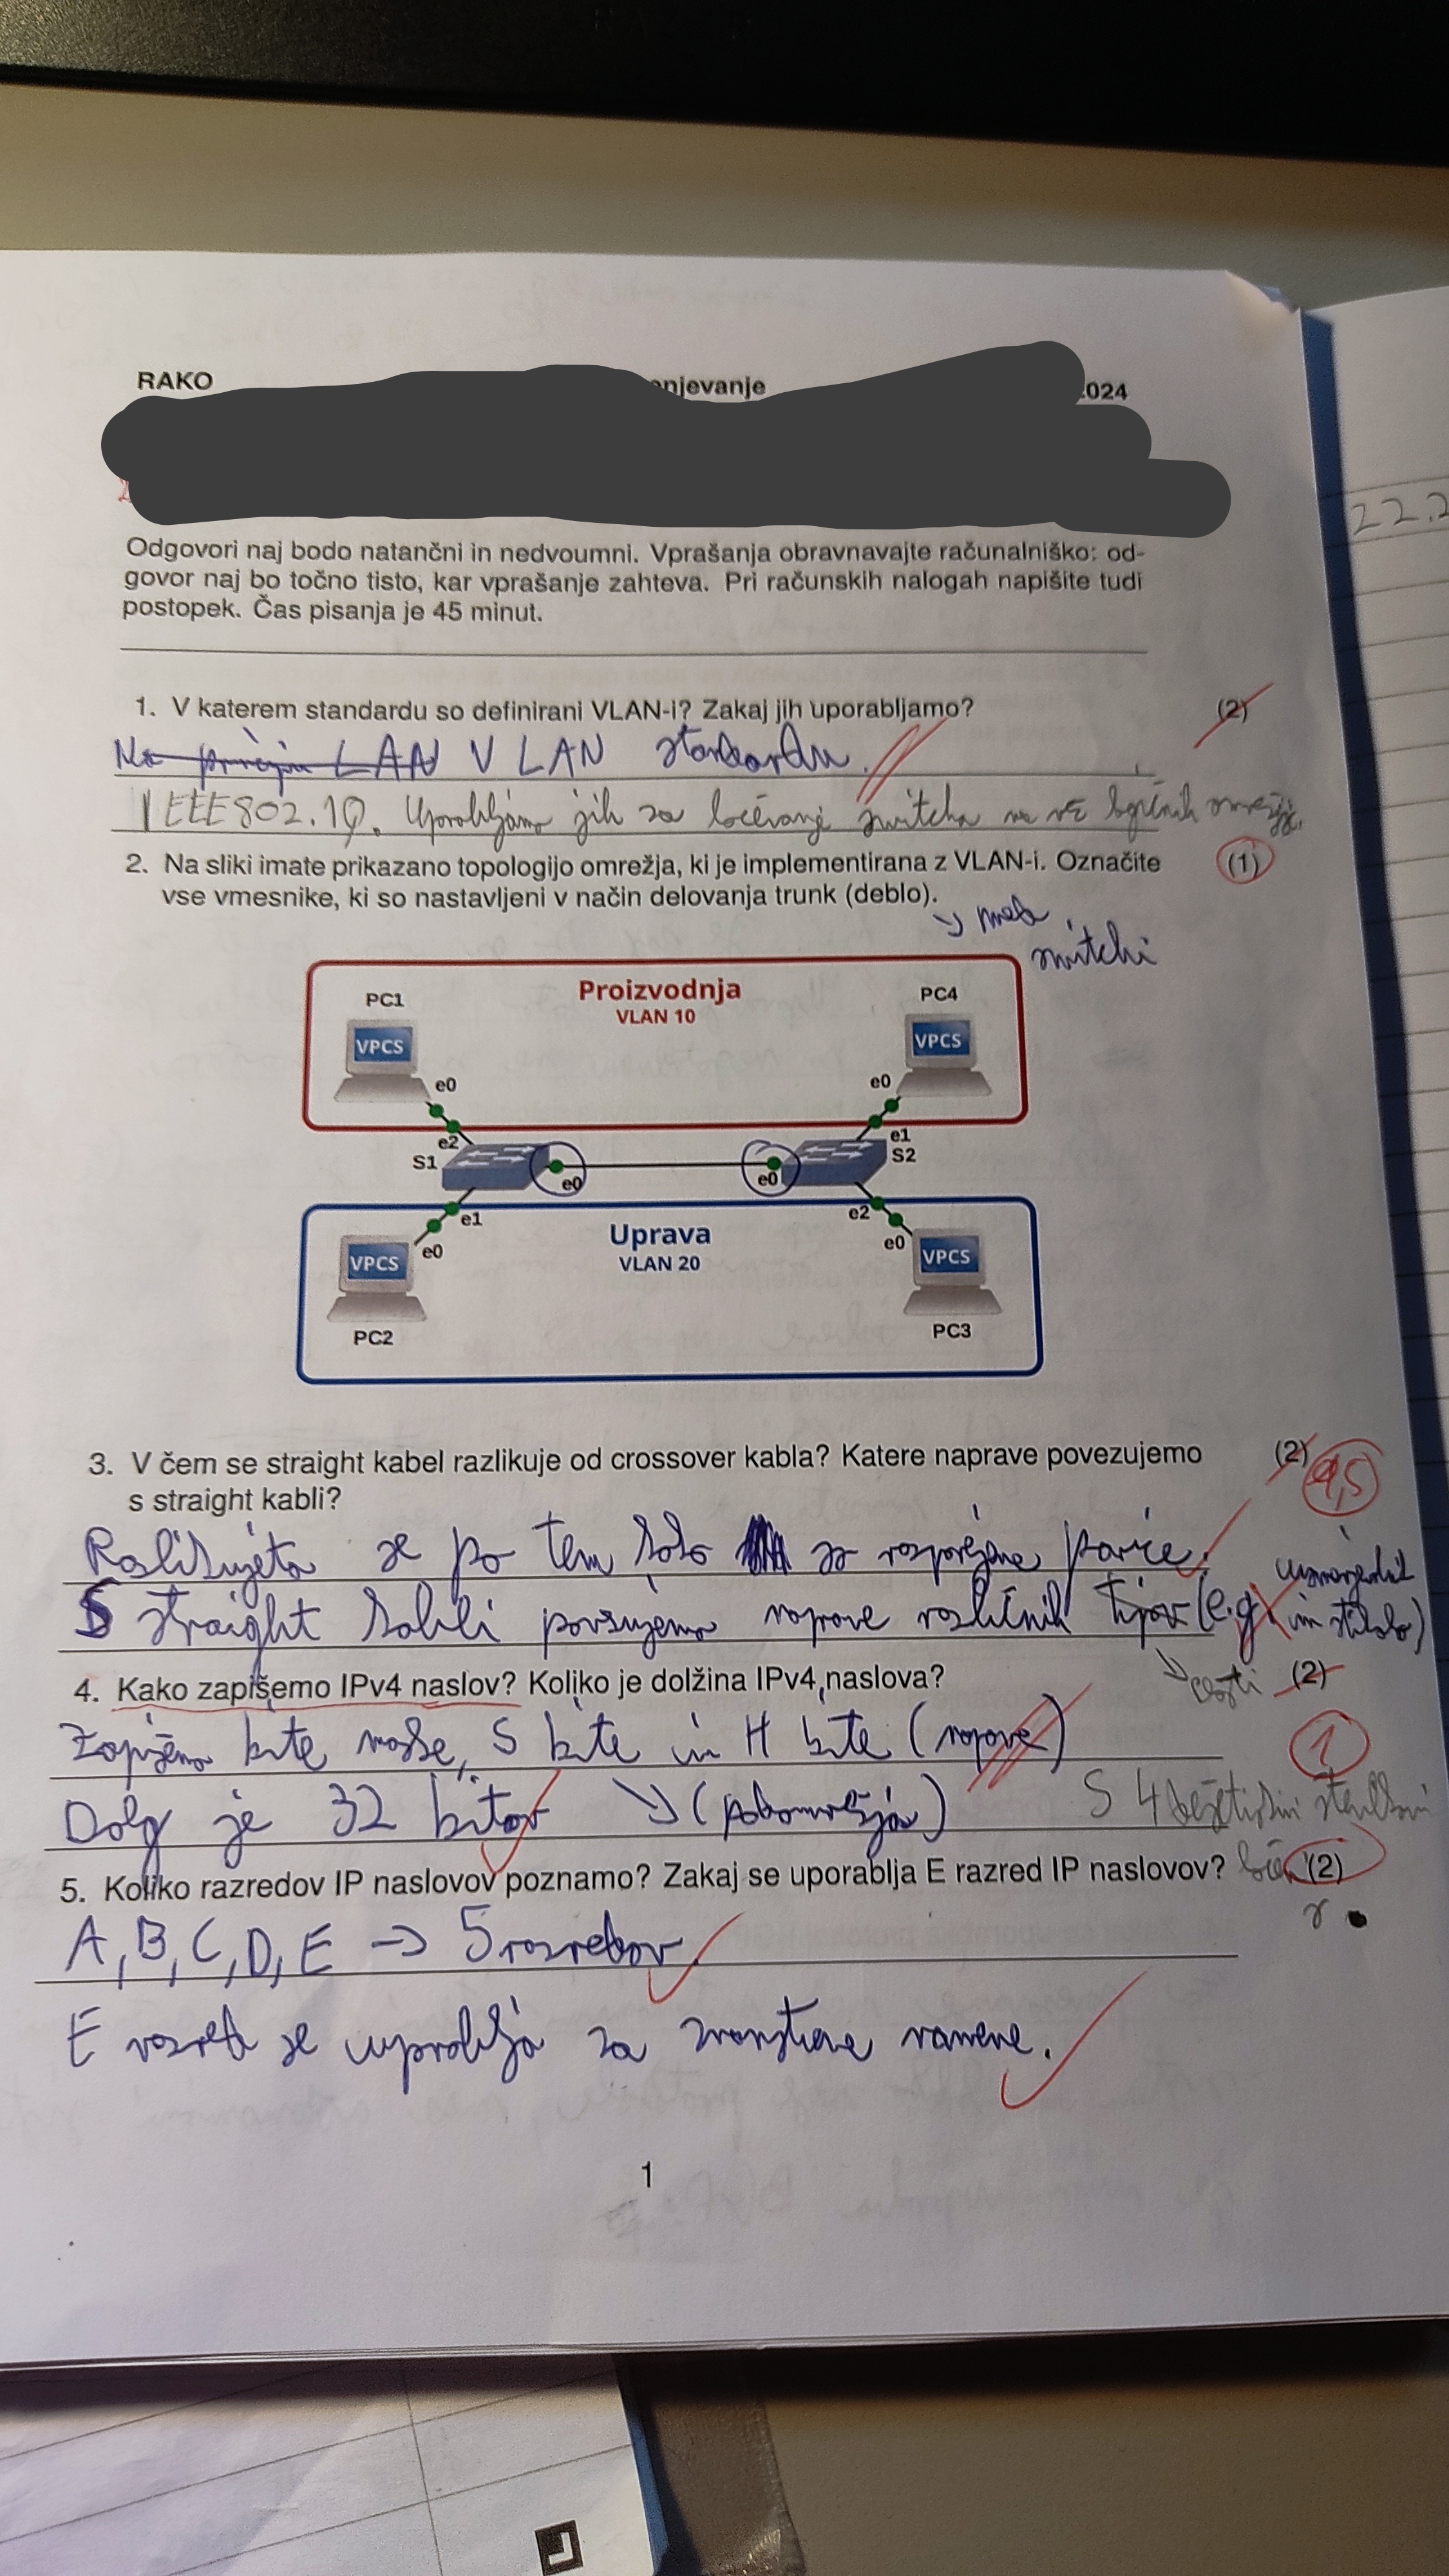 RAKO
njevanje
024
22.2
Odgovori naj bodo natančni in nedvoumni. Vprašanja obravnavajte računalniško: od-
govor naj bo točno tisto, kar vprašanje zahteva. Pri računskih nalogah napišite tudi
postopek. Čas pisanja je 45 minut.
1. V katerem standardu so definirani VLAN-i? Zakaj jih uporabljamo? (2)
LAN V LAN standardu.
IEEE802.1Q. Uporabljamo jih za ločevanje switcha na več logičnih omrežij.
2. Na sliki imate prikazano topologijo omrežja, ki je implementirana z VLAN-i. Označite (1)
vse vmesnike, ki so nastavljeni v način delovanja trunk (deblo).
switchi
Proizvodnja
VLAN 10
PC1
PC4
VPCS
VPCS
e0
e0
e2
e1
S1
S2
e0
e0
e1
e2
e0
e0
Uprava
VLAN 20
VPCS
VPCS
PC2
PC3
3. V čem se straight kabel razlikuje od crossover kabla? Katere naprave povezujemo (2) 1,5
s straight kabli?
Razlikujeta se po tem kako so razporejene parice.
S straight kabli povezujemo naprave različnih tipov (e.g. usmerjevalnik
in stikalo)
4. Kako zapišemo IPv4 naslov? Koliko je dolžina IPv4 naslova? (2)
Zapišemo bite maske, S bite in H bite (naprave) 1
Dolg je 32 bitov (podomrežja) S 4 desetiškimi številkami
5. Koliko razredov IP naslovov poznamo? Zakaj se uporablja E razred IP naslovov? (2)
A, B, C, D, E → 5 razredov.
E razred se uporablja za znanstvene namene.
1